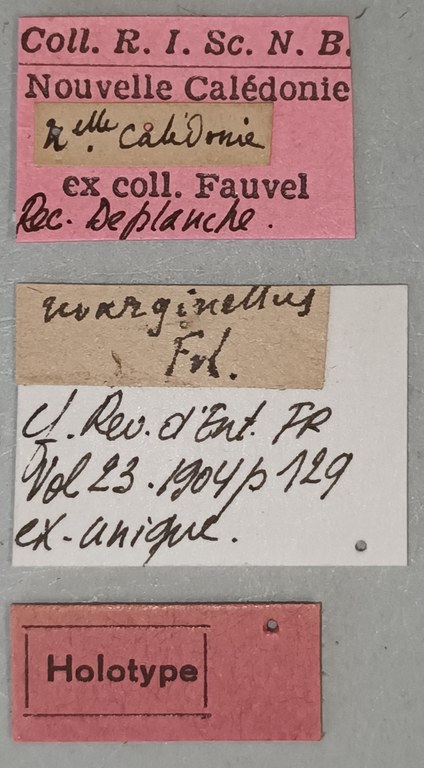 Coll. R. I. Sc. N. B.
Nouvelle Calédonie
nelle Calédonie
ex coll. Fauvel
Rec. Deplanche.
marginellus
Fvl.
cf. Rev. d'Ent. FR
Vol 23. 1904 p 129
ex-unique.
Holotype